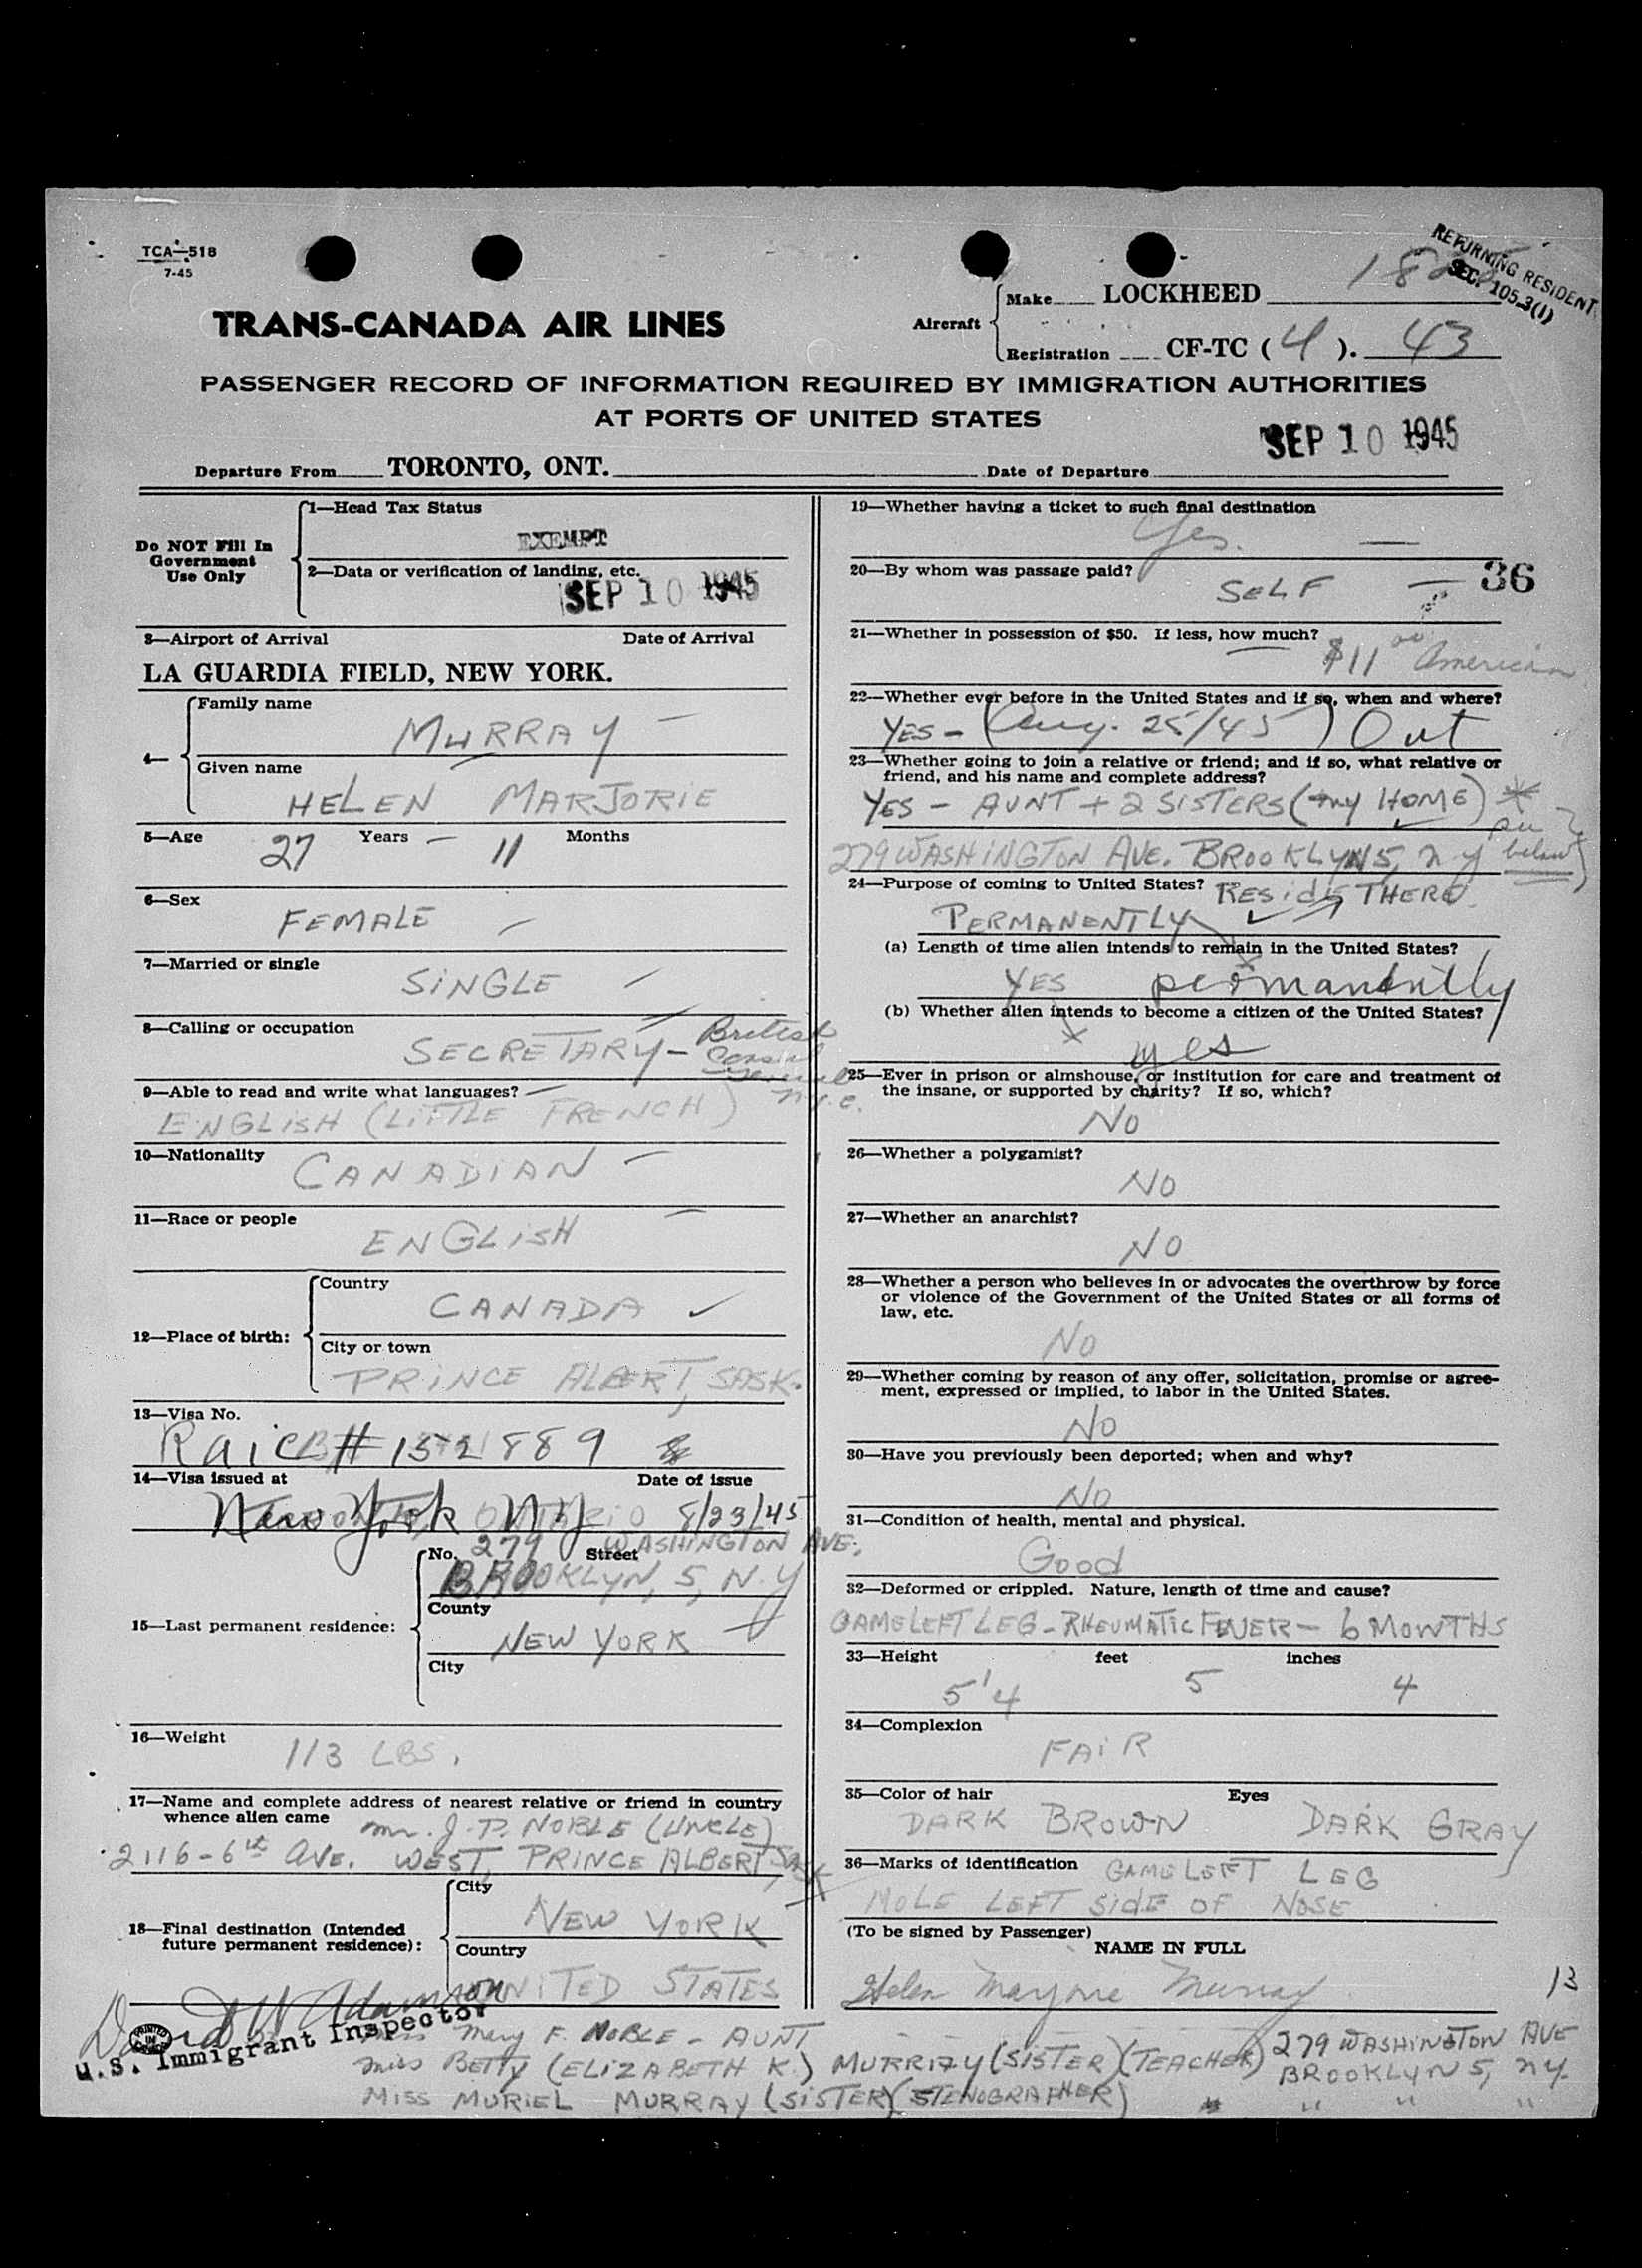 TCA—518
7-45
RETURNING RESIDENT
SEC. 105.3(1)
TRANS-CANADA AIR LINES
Aircraft
Make LOCKHEED
Registration CF-TC ( 4 ). 43
PASSENGER RECORD OF INFORMATION REQUIRED BY IMMIGRATION AUTHORITIES
AT PORTS OF UNITED STATES
Departure From TORONTO, ONT. Date of Departure SEP 10 1945
Do NOT Fill In
Government
Use Only
1—Head Tax Status
EXEMPT
2—Data or verification of landing, etc.
SEP 10 1945
3—Airport of Arrival Date of Arrival
LA GUARDIA FIELD, NEW YORK.
4—
Family name
MURRAY
Given name
HELEN MARJORIE
5—Age 27 Years — 11 Months
6—Sex
FEMALE
7—Married or single
SINGLE
8—Calling or occupation
SECRETARY — British
9—Able to read and write what languages?
ENGLISH (LITTLE FRENCH)
10—Nationality
CANADIAN
11—Race or people
ENGLISH
12—Place of birth:
Country
CANADA
City or town
PRINCE ALBERT, SASK.
13—Visa No.
# 1521889
14—Visa issued at Date of issue
New York NY 8/23/45
15—Last permanent residence:
No. 279 Street WASHINGTON AVE.
BROOKLYN, 5, N.Y
County
NEW YORK
City
16—Weight
113 LBS.
17—Name and complete address of nearest relative or friend in country
whence alien came
mr. J. P. NOBLE (UNCLE)
2116-6th AVE. WEST, PRINCE ALBERT, SASK
18—Final destination (Intended
future permanent residence):
City
NEW YORK
Country
UNITED STATES
U.S. Immigrant Inspector
19—Whether having a ticket to such final destination
Yes.
20—By whom was passage paid?
SELF
36
21—Whether in possession of $50. If less, how much?
$11 00 American
22—Whether ever before in the United States and if so, when and where?
YES - (Aug. 25/45) Out
23—Whether going to join a relative or friend; and if so, what relative or
friend, and his name and complete address?
YES - AUNT + 2 SISTERS (my HOME)
279 WASHINGTON AVE. BROOKLYN 5, n.y below
24—Purpose of coming to United States? RESIDE THERE
PERMANENTLY
(a) Length of time alien intends to remain in the United States?
YES permanently
(b) Whether alien intends to become a citizen of the United States?
yes
25—Ever in prison or almshouse, or institution for care and treatment of
the insane, or supported by charity? If so, which?
No
26—Whether a polygamist?
NO
27—Whether an anarchist?
NO
28—Whether a person who believes in or advocates the overthrow by force
or violence of the Government of the United States or all forms of
law, etc.
NO
29—Whether coming by reason of any offer, solicitation, promise or agree-
ment, expressed or implied, to labor in the United States.
NO
30—Have you previously been deported; when and why?
NO
31—Condition of health, mental and physical.
Good
32—Deformed or crippled. Nature, length of time and cause?
GAME LEFT LEG - RHEUMATIC FEVER - 6 MONTHS
33—Height feet inches
5'4 5 4
34—Complexion
FAIR
35—Color of hair Eyes
DARK BROWN DARK GRAY
36—Marks of identification GAME LEFT LEG
MOLE LEFT SIDE OF NOSE
(To be signed by Passenger)
NAME IN FULL
Helen Marjorie Murray
13
Miss Mary F. NOBLE - AUNT
Miss BETTY (ELIZABETH K.) MURRAY (SISTER) (TEACHER) 279 WASHINGTON AVE
BROOKLYN 5, NY.
MISS MURIEL MURRAY (SISTER) (STENOGRAPHER) " " "